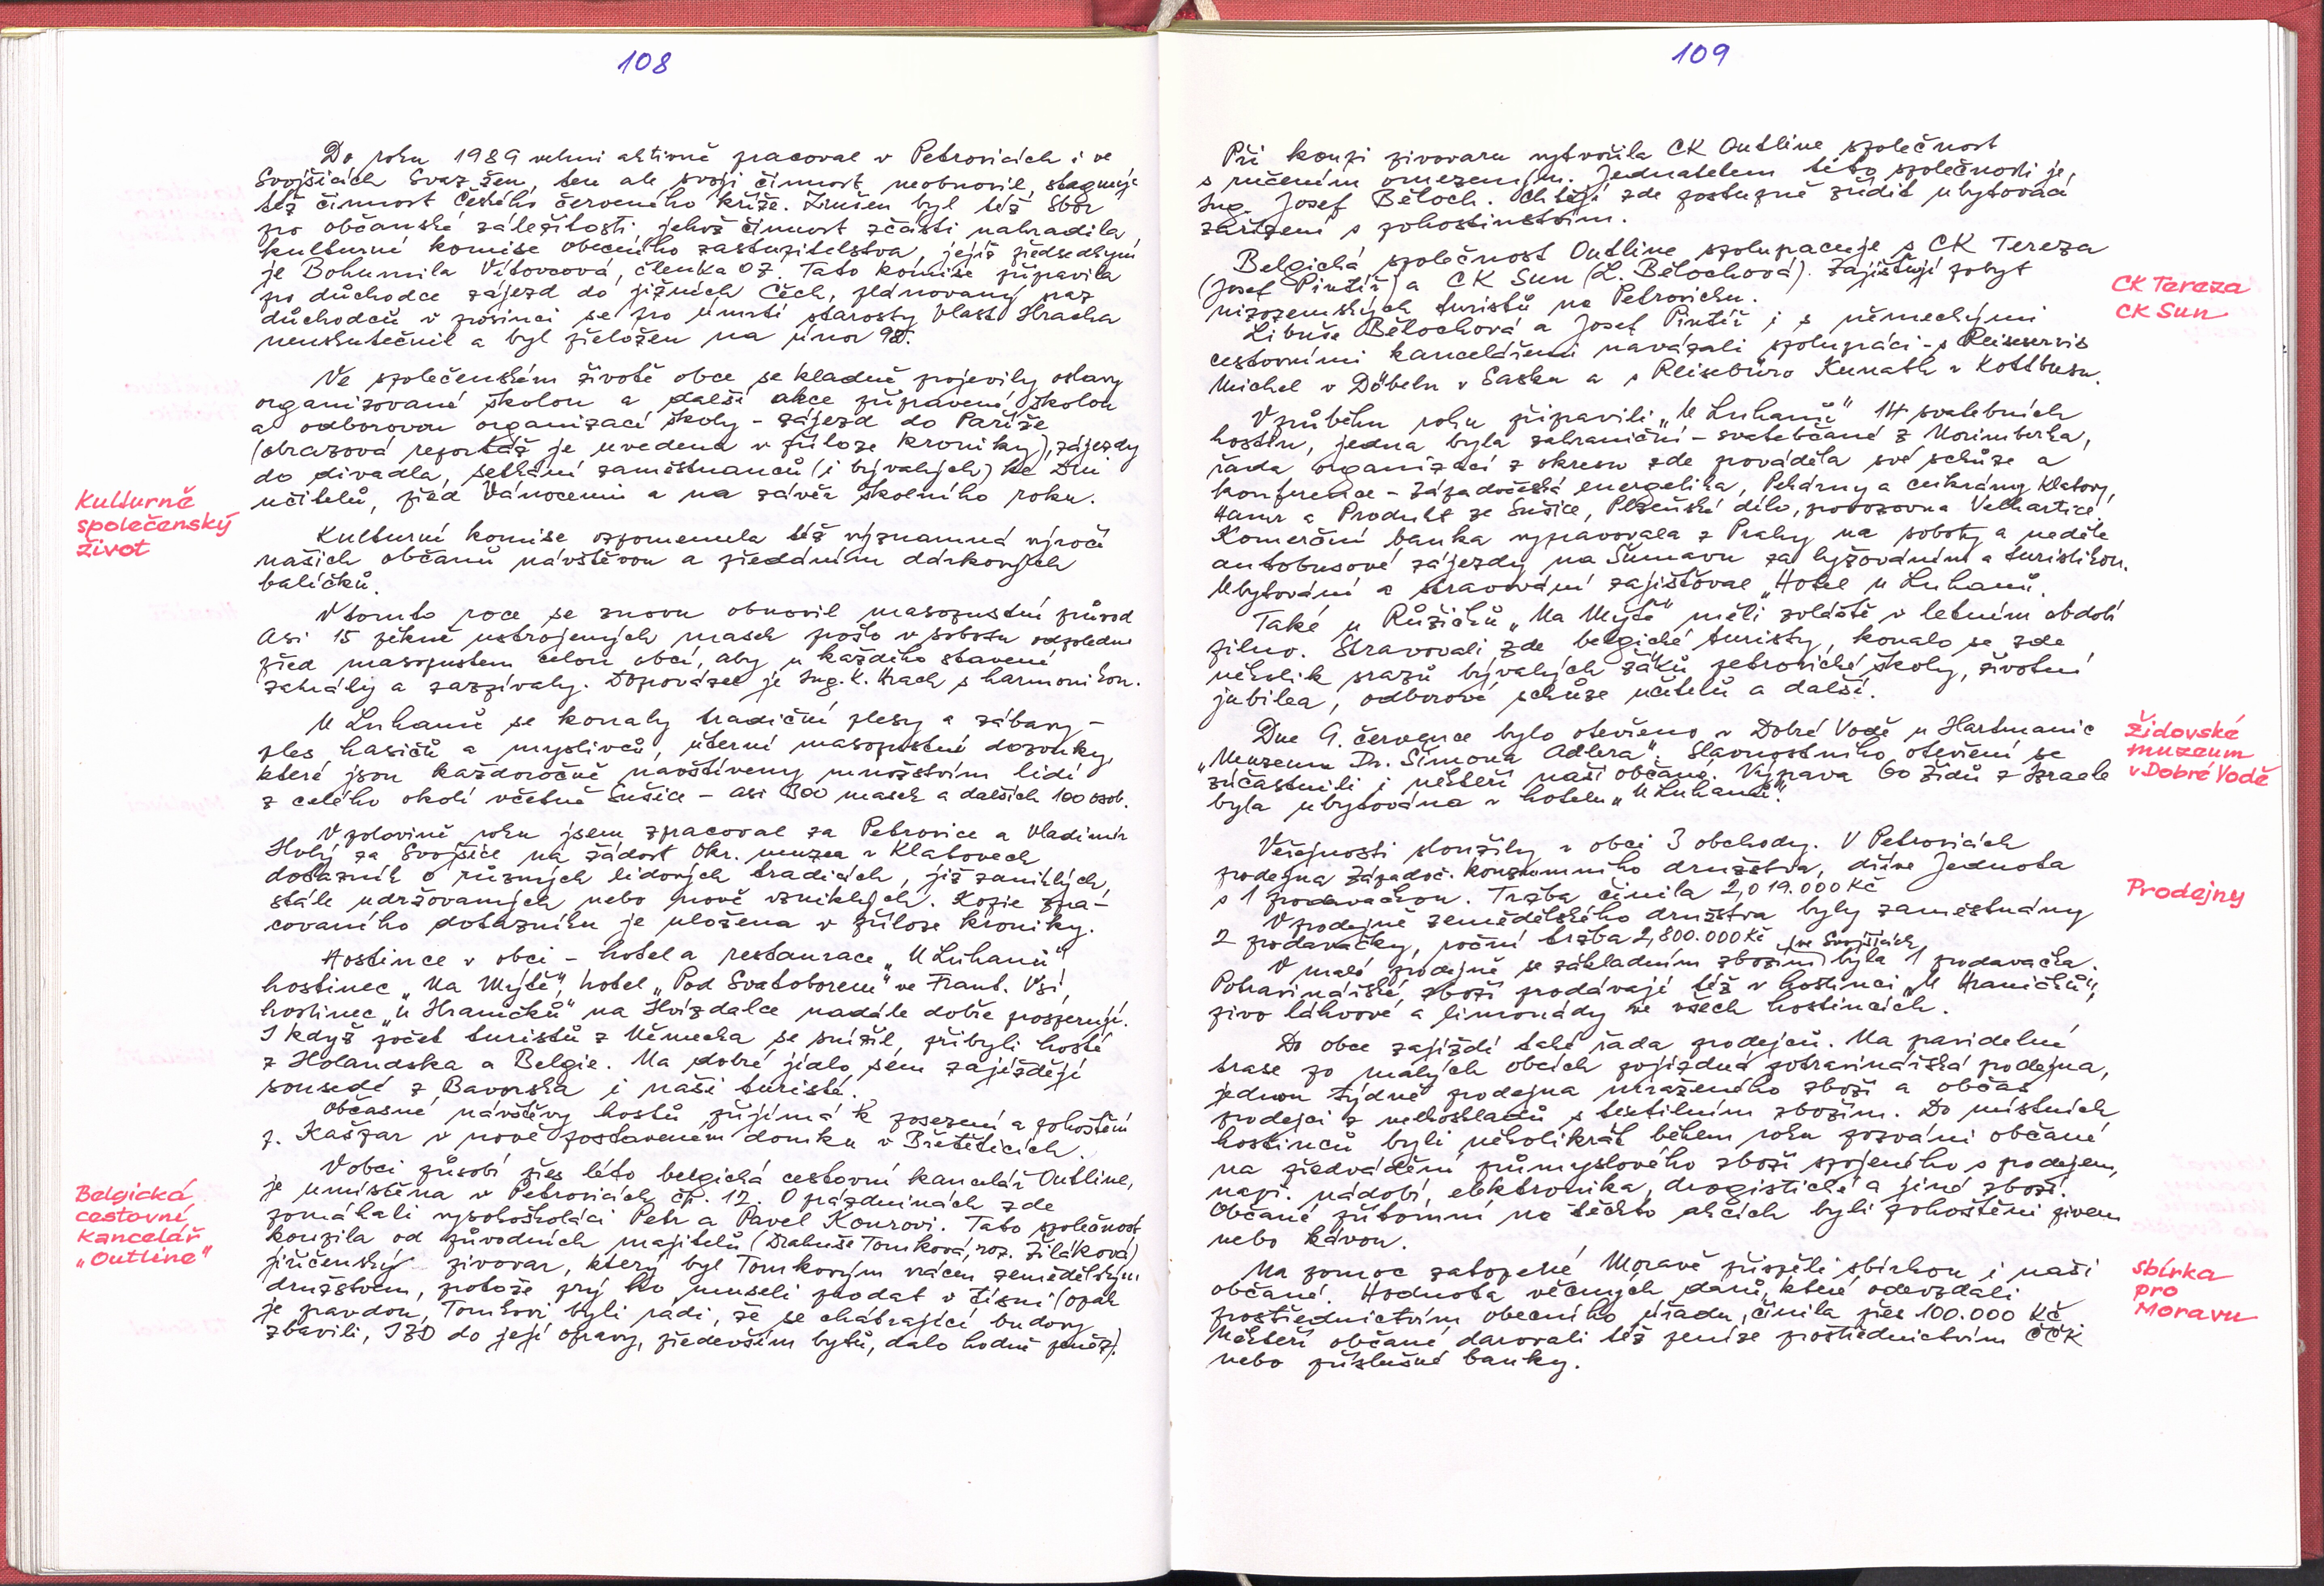 108
Do roku 1989 velmi aktivně pracoval v Petrovicích i ve
Svojšicích Svaz žen, ten ale svoji činnost neobnovil, stagnuje
též činnost Českého červeného kříže. Zrušen byl též Sbor
pro občanské záležitosti, jehož činnost zčásti nahradila
kulturní komise obecního zastupitelstva, jejíž předsedkyní
je Bohumila Vítovcová, členka OZ. Tato komise připravila
pro důchodce zájezd do jižních Čech, plánovaný sraz
důchodců v prosinci se pro úmrtí starosty Vlast. Hracha
neuskutečnil a byl přeložen na únor 98.
Ve společenském životě obce se kladně projevily oslavy
organizované školou a další akce připravené školou
a odborovou organizací školy - zájezd do Paříže
(obrazová reportáž je uvedena v příloze kroniky), zájezdy
do divadla, setkání zaměstnanců (i bývalých) ke Dni
učitelů, před Vánocemi a na závěr školního roku.
Kulturně
společenský
život
Kulturní komise vzpomenula též významná výročí
našich občanů návštěvou a předáním dárkových
balíčků.
V tomto roce se znovu obnovil masopustní průvod
Asi 15 pěkně ustrojených masek prošlo v sobotu odpoledne
před masopustem celou obcí, aby u každého stavení
zahrály a zazpívaly. Doprovázel je Ing. K. Hrach s harmonikou.
U Luhanů se konaly tradiční plesy a zábavy -
ples hasičů a myslivců, úterní masopustní dozvuky,
které jsou každoročně navštíveny množstvím lidí
z celého okolí včetně Sušice - asi 300 masek a dalších 100 osob.
V polovině roku jsem zpracoval za Petrovice a Vladimír
Holý za Svojšice na žádost Okr. muzea v Klatovech
dotazník o různých lidových tradicích, již zaniklých,
stále udržovaných nebo nově vzniklých. Kopie zpra-
covaného dotazníku je uložena v příloze kroniky.
Hostince v obci - hotel a restaurace „U Luhanů“
hostinec „Na Mýtě“, hotel „Pod Svatoborem“ ve Frant. Vsi,
hostinec „U Hraničků“ na Hvízdalce nadále dobře prosperují.
I když počet turistů z Německa se snížil, přibyli hosté
z Holandska a Belgie. Na dobré jídlo sem zajíždějí
sousedé z Bavorska i naši turisté.
Občasné návštěvy hostů přijímá k posezení a pohoštění
p. Kašpar v nově postaveném domku v Břetěticích.
V obci působí přes léto belgická cestovní kancelář Outline,
je umístěna v Petrovicích čp. 12. O prázdninách zde
pomáhali vysokoškoláci Petr a Pavel Kourovi. Tato společnost
koupila od původních majitelů (Drahuše Tomková, roz. Žiláková)
jiřičenský pivovar, který byl Tomkovým vrácen zemědělským
družstvem, protože prý ho museli prodat v tísni (opak
je pravdou, Tomkovi byli rádi, že se chátrající budovy
zbavili, JZD do její opravy, především bytů, dalo hodně peněz).
Belgická
cestovní
kancelář
„Outline“
109
Při koupi pivovaru vytvořila CK Outline společnost
s ručením omezeným. Jednatelem této společnosti je,
Ing. Josef Běloch. Chtějí zde postupně zřídit ubytovací
zařízení s pohostinstvím.
Belgická společnost Outline spolupracuje s CK Tereza
(Josef Pintíř) a CK Sun (L. Bělochová). Zajišťují pobyt
nizozemských turistů na Petrovicku.
CK Tereza
CK Sun
Libuše Bělochová a Josef Pintíř i s německými
cestovními kancelářemi navázali spolupráci - s Reiseservis
Michel v Döbeln v Sasku a s Reisebüro Kunath v Kottbusu.
V průběhu roku připravili „U Luhanů“ 14 svatebních
hostin, jedna byla zahraniční - svatebčané z Norimberka,
řada organizací z okresu zde prováděla své schůze a
konference - Západočeská energetika, Pekárny a cukrárny Klatovy,
Hamr a Produkt ze Sušice, Plzeňské dílo, provozovna Velhartice
Komerční banka vypravovala z Prahy na soboty a neděle
autobusové zájezdy na Šumavu za lyžováním a turistikou.
Ubytování a stravování zajišťoval „Hotel u Luhanů.
Také u Růžičků „Na Mýtě“ měli zvláště v letním období
pilno. Stravovali zde belgické turisty, konalo se zde
několik srazů bývalých žáků petrovické školy, životní
jubilea, odborové schůze učitelů a další.
Dne 9. července bylo otevřeno v Dobré Vodě u Hartmanic
„Muzeum Dr. Šimona Adlera“. Slavnostního otevření se
zúčastnili i někteří naši občané. Výprava 60 Židů z Izraele
byla ubytována v hotelu „U Luhanů“.
Židovské
muzeum
v Dobré Vodě
Veřejnosti sloužily v obci 3 obchody. V Petrovicích
prodejna Západoč. konzumního družstva, dříve Jednota
s 1 prodavačkou. Tržba činila 2,019.000 Kč
Prodejny
V prodejně zemědělského družstva byly zaměstnány
2 prodavačky, roční tržba 2,800.000 Kč
V malé prodejně se základním zbožím ve Svojšicích byla 1 prodavačka.
Potravinářské zboží prodávají též v hostinci „U Hraničků“,
pivo láhvové a limonády ve všech hostincích.
Do obce zajíždí také řada prodejců. Na pravidelné
trase po malých obcích pojízdná potravinářská prodejna,
jednou týdně prodejna mraženého zboží a občas
prodejci z velkoskladů s textilním zbožím. Do místních
hostinců byli několikrát během roku pozváni občané
na předvádění průmyslového zboží spojeného s prodejem,
např. nádobí, elektronika, drogistické a jiné zboží.
Občané přítomní na těchto akcích byli pohoštěni pivem
nebo kávou.
Na pomoc zatopené Moravě přispěli sbírkou i naši
občané. Hodnota věcných darů, které odevzdali
prostřednictvím obecního úřadu, činila přes 100.000 Kč
Někteří občané darovali též peníze prostřednictvím ČČK
nebo příslušné banky.
sbírka
pro
Moravu